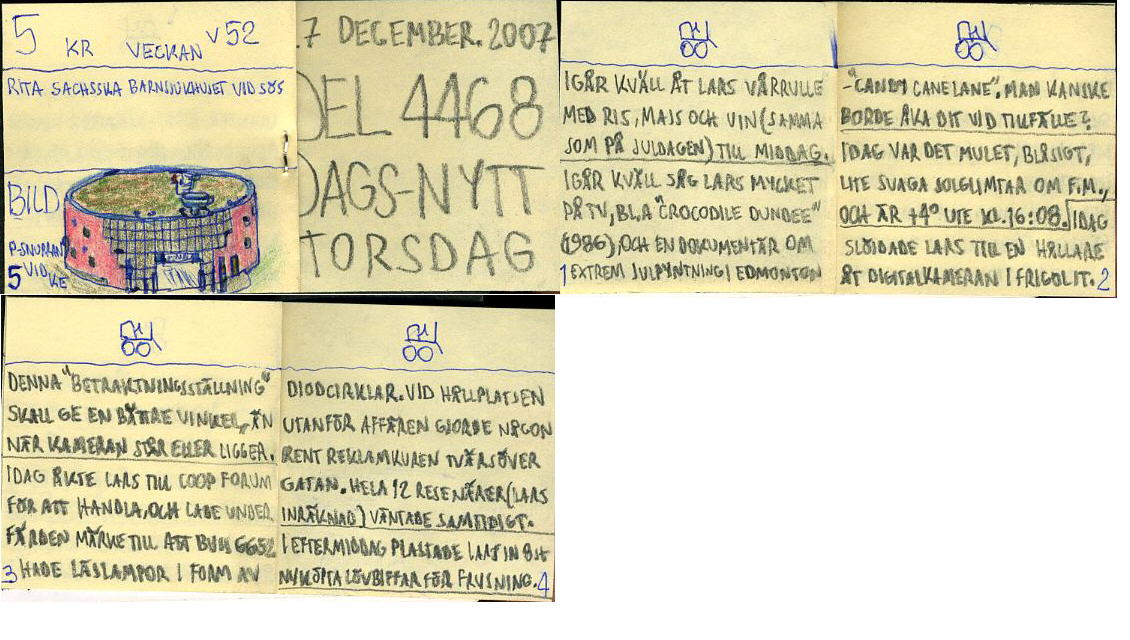 5 KR VECKAN V52
RITA SACHSSKA BARNSJUKHUSET VID SÖS
BILD
P-SNURRAN
5 VID
7 DECEMBER. 2007
DEL 4468
DAGS-NYTT
TORSDAG
IGÅR KVÄLL ÅT LARS VÅRRULLE
MED RIS, MAJS OCH VIN (SAMMA
SOM PÅ JULDAGEN) TILL MIDDAG.
IGÅR KVÄLL SÅG LARS MYCKET
PÅ TV, BL.A "CROCODILE DUNDEE"
(1986), OCH EN DOKUMENTÄR OM
1 EXTREM JULPYNTNING I EDMONTON
-"CANDY CANE LANE". MAN KANSKE
BORDE ÅKA DIT VID TILLFÄLLE?
IDAG VAR DET MULET, BLÅSIGT,
LITE SVAGA SOLGLIMTAR OM F.M.,
OCH ÄR +4° UTE KL. 16:08. IDAG
SLÖJDADE LARS TILL EN HÅLLARE
ÅT DIGITALKAMERAN I FRIGOLIT. 2
DENNA "BETRAKTNINGSSTÄLLNING"
SKALL GE EN BÄTTRE VINKEL, ÄN
NÄR KAMERAN STÅR ELLER LIGGER.
IDAG ÅKTE LARS TILL COOP FORUM
FÖR ATT HANDLA, OCH LADE UNDER
FÄRDEN MÄRKE TILL ATT BUSS 6652
3 HADE LÄSLAMPOR I FORM AV
DIODCIRKLAR. VID HÅLLPLATSEN
UTANFÖR AFFÄREN GJORDE NÅGON
RENT REKLAMKUREN TVÄRSÖVER
GATAN. HELA 12 RESENÄRER (LARS
INRÄKNAD) VÄNTADE SAMTIDIGT.
I EFTERMIDDAG PLASTADE LARS IN 8 ST
NYKÖPTA LÖVBIFFAR FÖR FRYSNING. 4